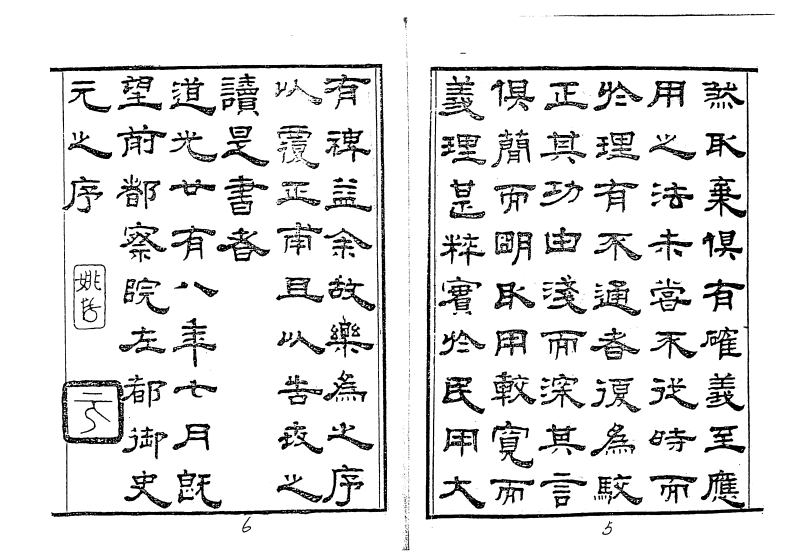 然取棄俱有確義至應
用之法未嘗不從時而
於理有不通者復為駁
正其功由淺而深其言
俱簡而明取用較寬而
義理甚粹實於民用大
5
有裨益余故樂為之序
以覆正甫且以告之
讀是書者
道光廿有八年七月旣
望前都察院左都御史
元之序
姚
元
6